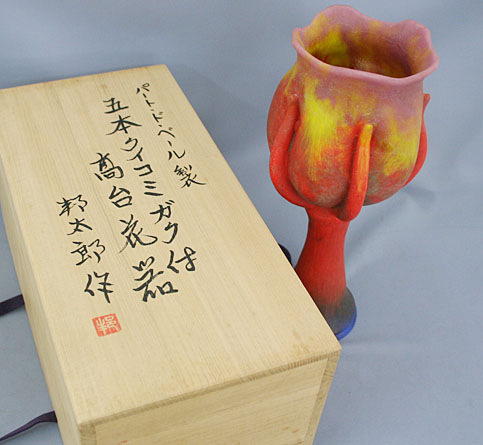 パート・ド・ベール製
五本クイコミガク付
高台花器
邦太郎作